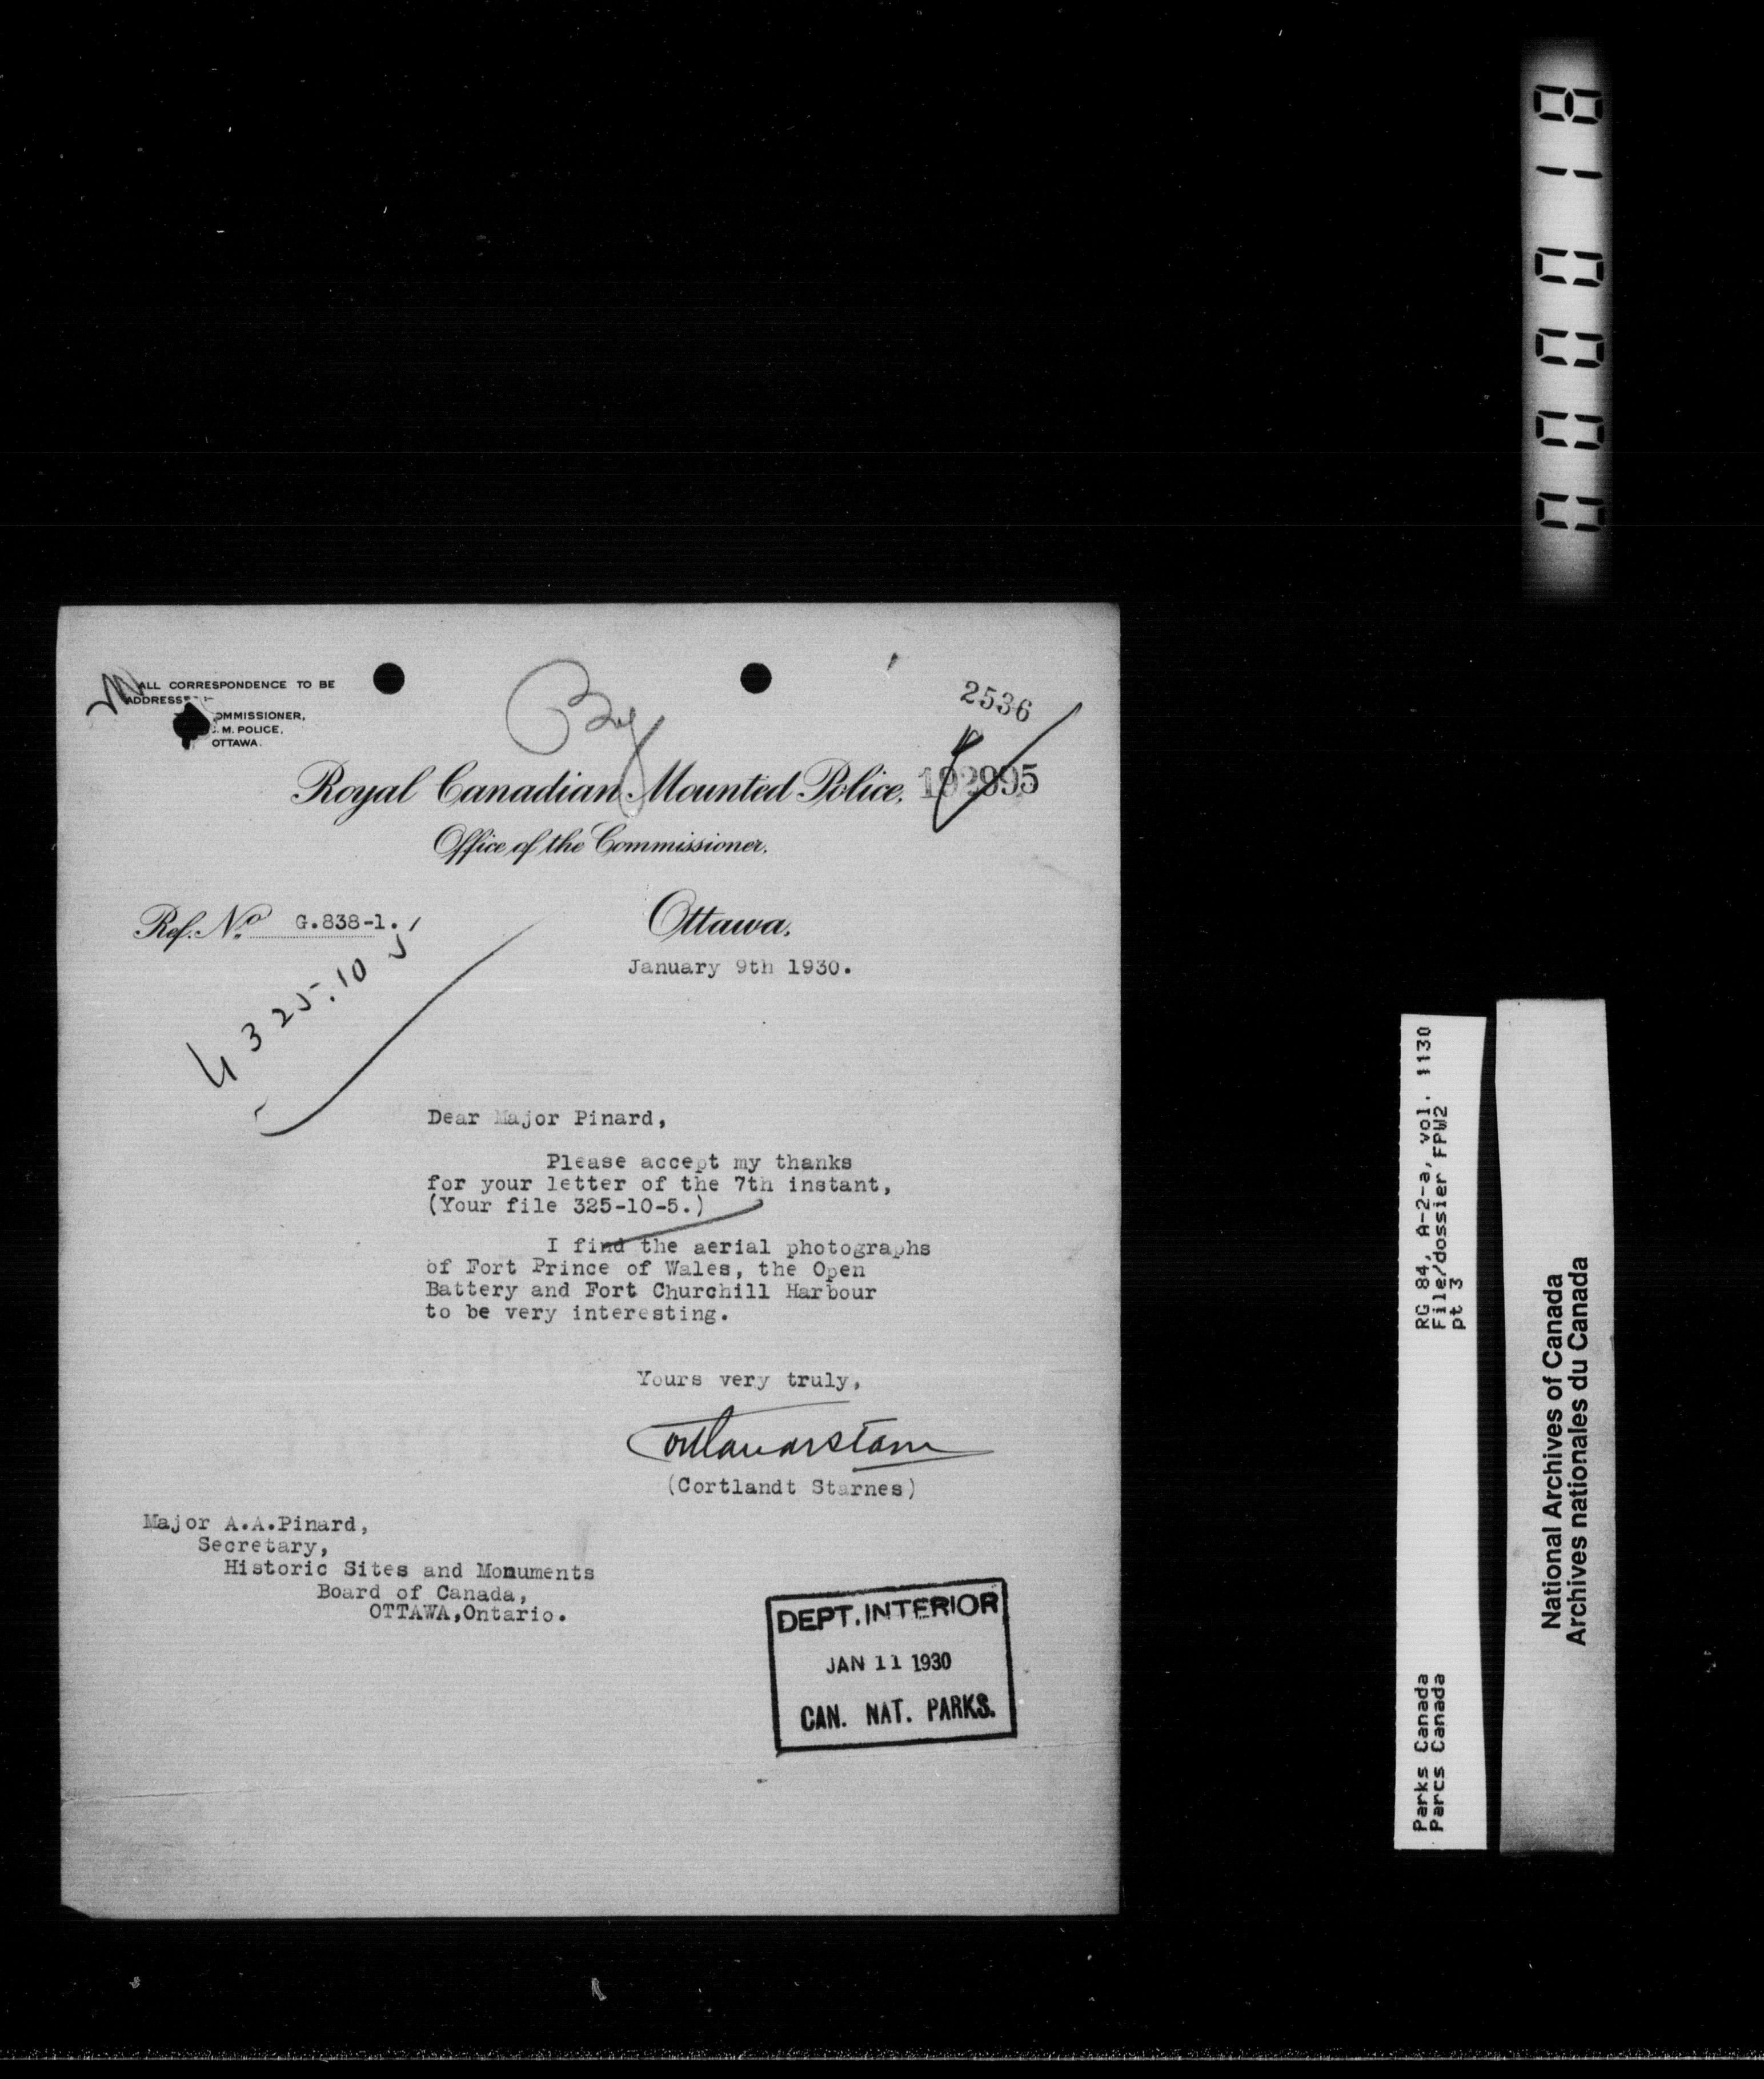 ALL CORRESPONDENCE TO BE
ADDRESSE
OMMISSIONER,
. M. POLICE,
OTTAWA.
2536
192995
Royal Canadian Mounted Police,
Office of the Commissioner.
Ref. No. G.838-1.
Ottawa,
January 9th 1930.
4 325-10 5
Dear Major Pinard,
Please accept my thanks
for your letter of the 7th instant,
(Your file 325-10-5.)
I find the aerial photographs
of Fort Prince of Wales, the Open
Battery and Fort Churchill Harbour
to be very interesting.
Yours very truly,
Cortlandt Starnes
(Cortlandt Starnes)
Major A.A.Pinard,
Secretary,
Historic Sites and Monuments
Board of Canada,
OTTAWA,Ontario.
DEPT. INTERIOR
JAN 11 1930
CAN. NAT. PARKS.
RG 84, A-2-a, vol. 1130
File/dossier FPW2
pt 3
Parks Canada
Parcs Canada
National Archives of Canada
Archives nationales du Canada
000018